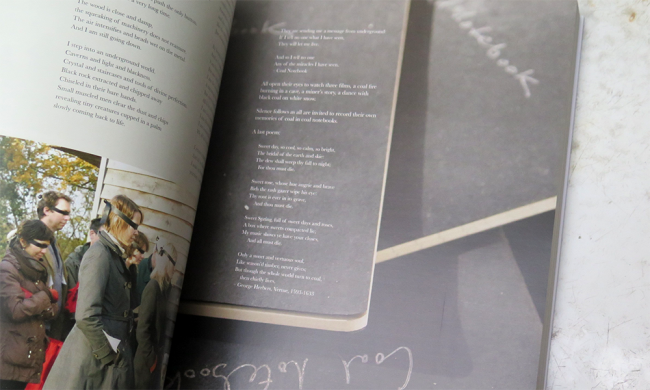 The wood is close and damp.
the upraking of machinery does not reassure.
The air intensifies and beads wet on the metal.
And I am still going down.
I step into an underground world.
Caverns and light and blackness.
Crystal and staircases and tools of divine perfection.
Black rock extracted and chipped away
Chiseled in their bare hands.
Small muscled men clear the dust and chips
revealing tiny creatures cupped in a palm,
slowly coming back to life.
They are sending me a message from underground
If I tell no one what I have seen,
They will let me live.
And so I tell no one
Any of the miracles I have seen.
- Coal Notebook
All open their eyes to watch three films, a coal fire
burning in a cave, a miner's story, a dance with
black coal on white snow.
Silence follows as all are invited to record their own
memories of coal in coal notebooks.
A last poem:
Sweet day, so cool, so calm, so bright,
The bridal of the earth and skie:
The dew shall weep thy fall to night;
For thou must die.
Sweet rose, whose hue angrie and brave
Bids the rash gazer wipe his eye:
Thy root is ever in its grave,
And thou must die.
Sweet Spring, full of sweet dayes and roses,
A box where sweets compacted lie,
My music shows ye have your closes,
And all must die.
Only a sweet and vertuous soul,
Like season'd timber, never gives;
But though the whole world turn to coal,
then chiefly lives.
- George Herbert, Vertue, 1593-1633
Notebook
Coal Notebook